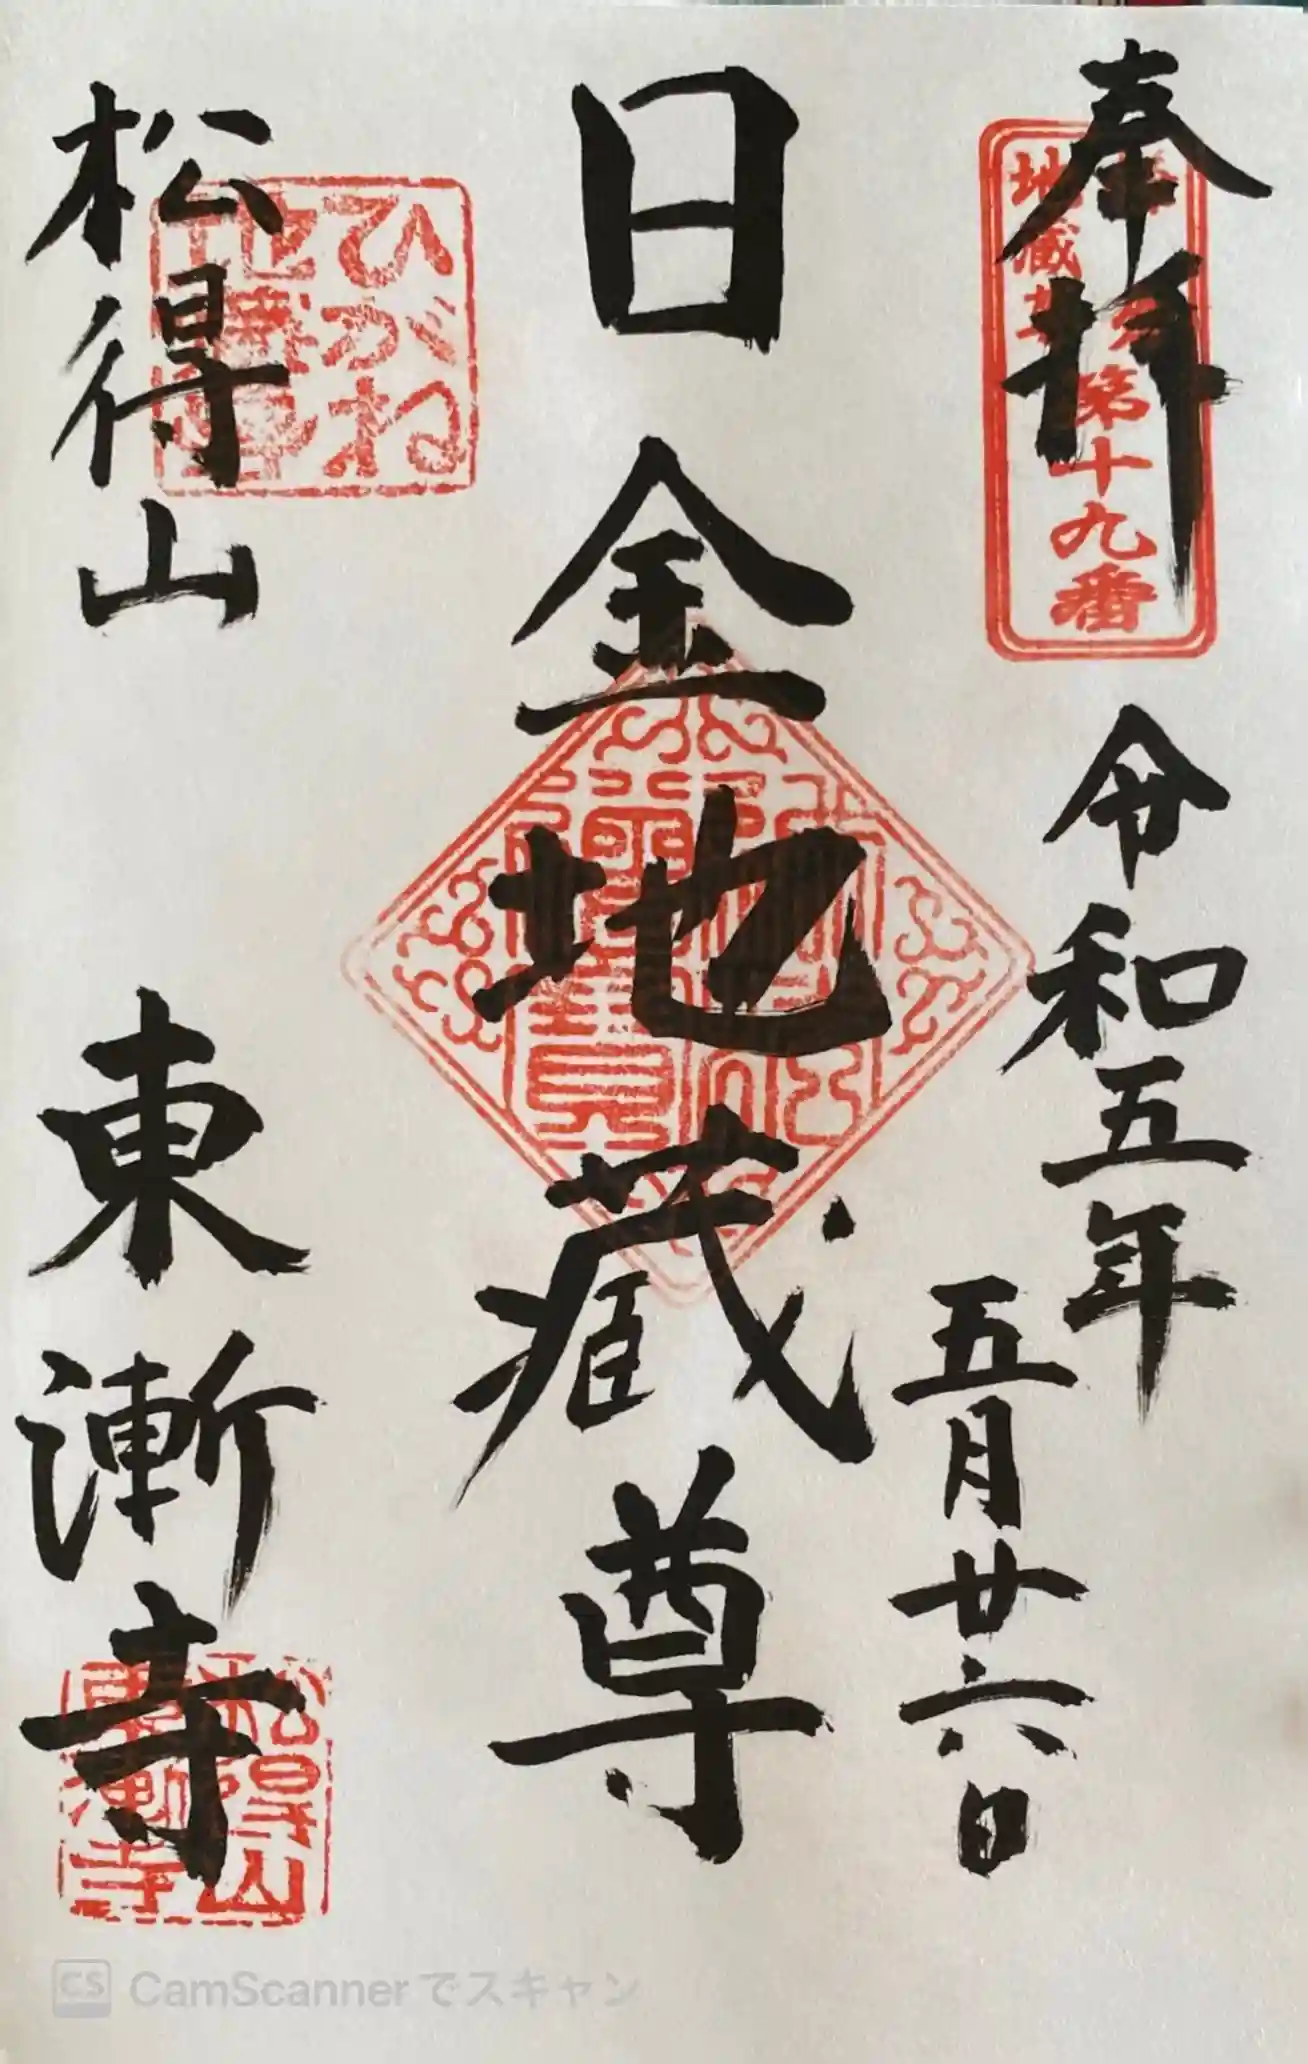 奉拝
第十九番
令和五年
五月廿六日
日金地蔵尊
ひがね
松得山
東漸寺
松得山
東漸寺
CS CamScannerでスキャン